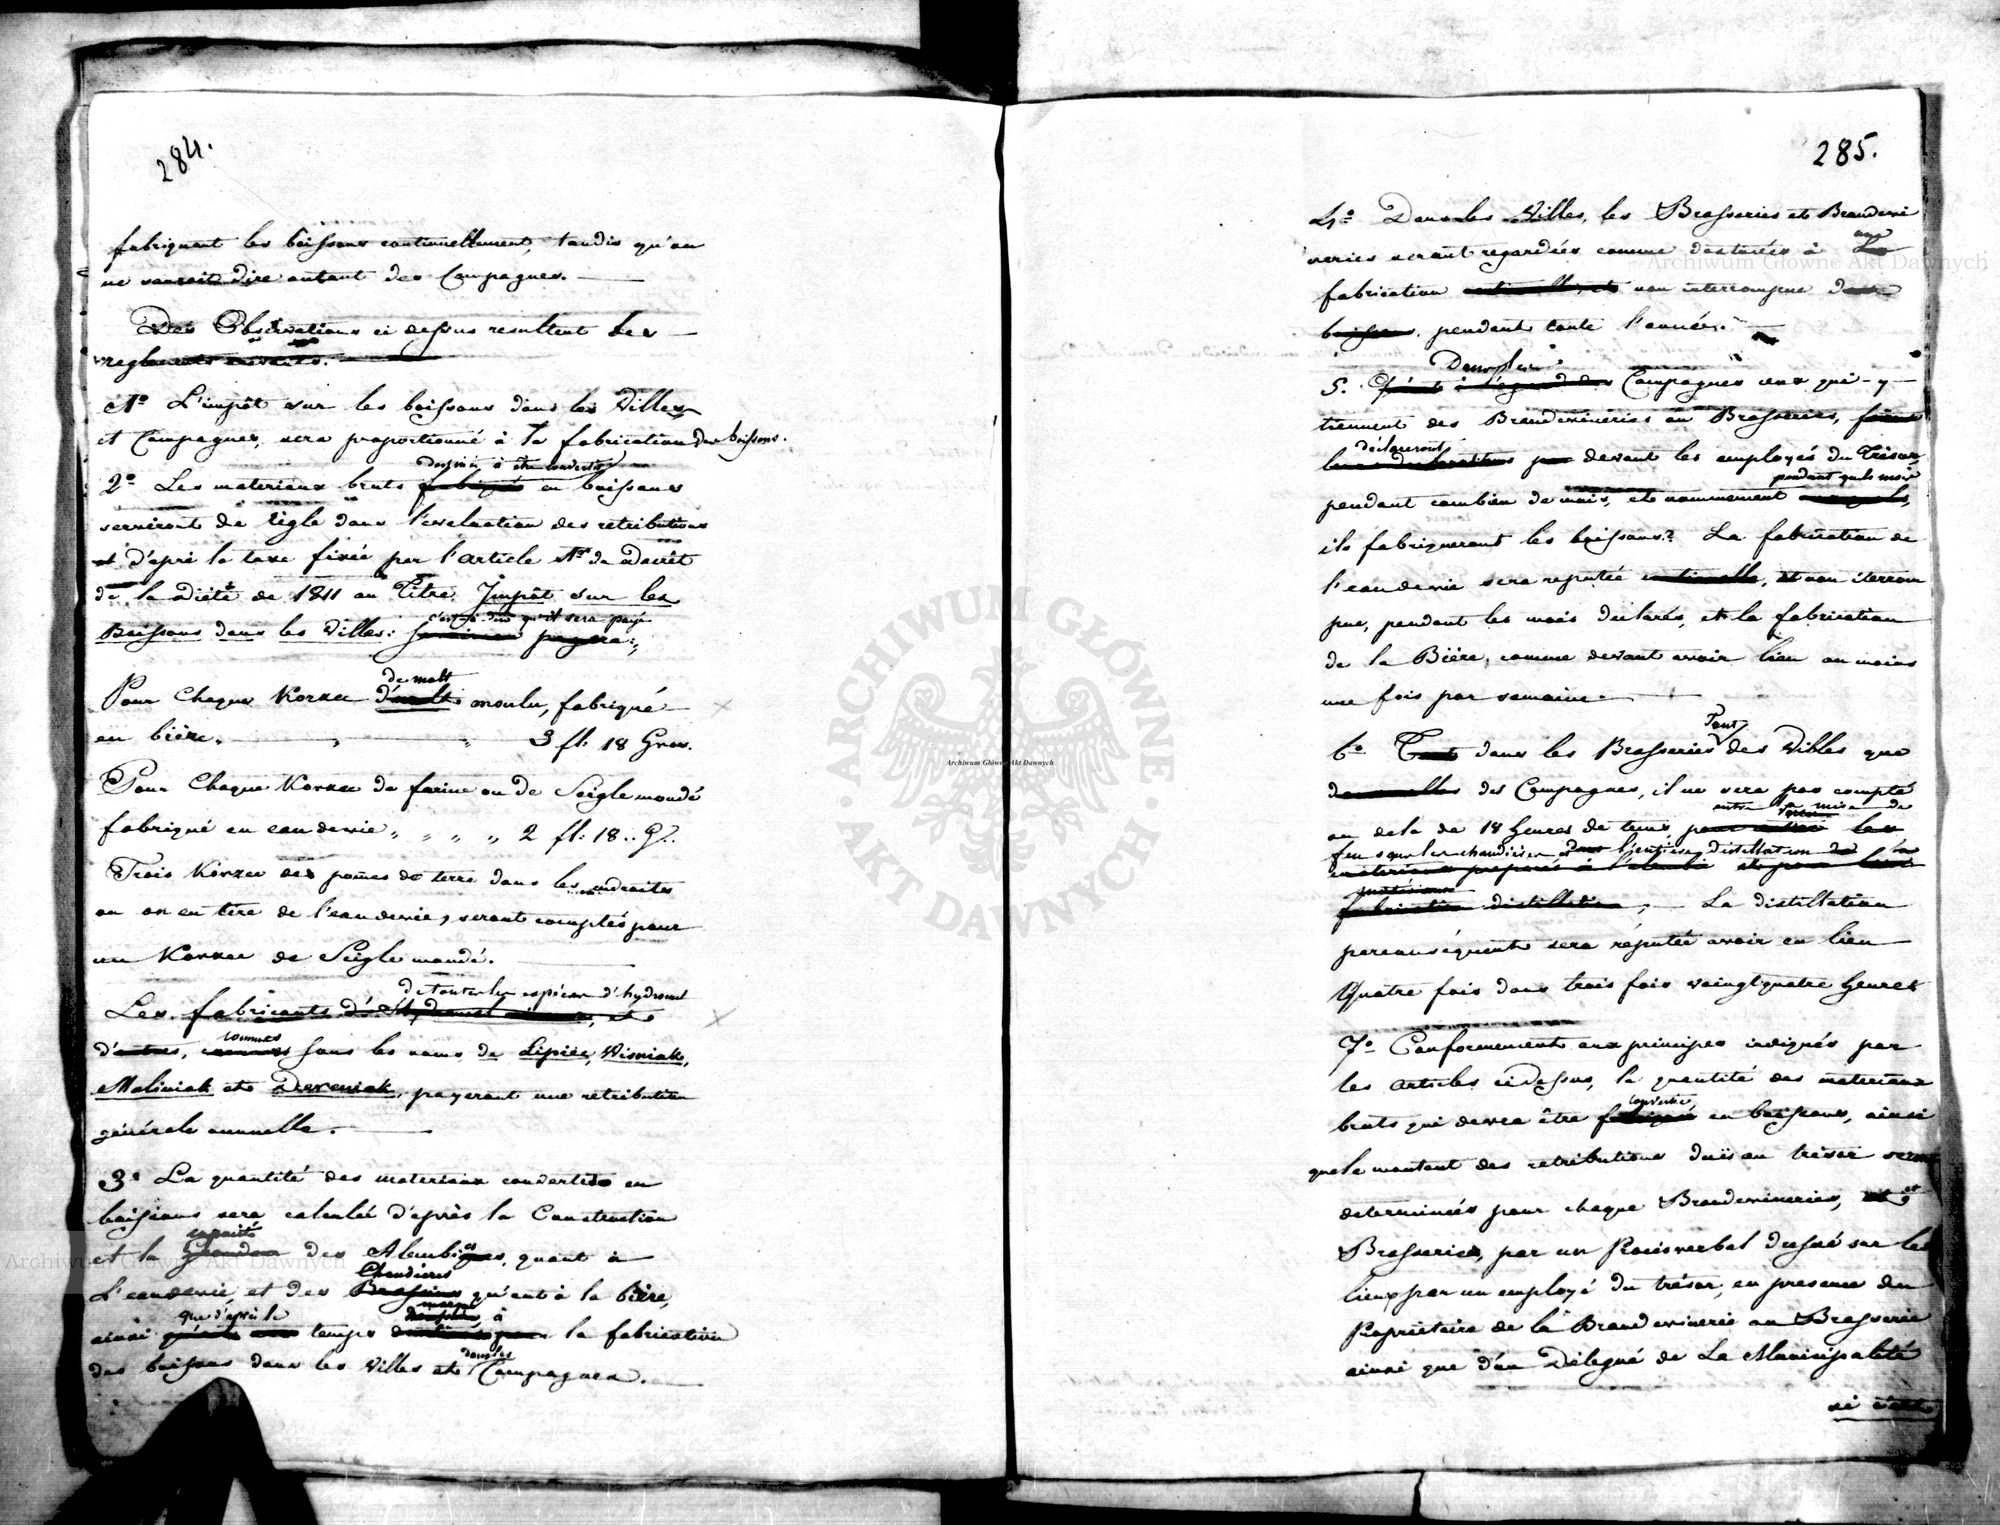 284.
fabriquent les boissons continuellement, tandis qu'on
ne sauroit dire autant des Campagnes.
Des Observations ci dessus resultent les
reglements suivants.
1º L'impôt sur les boissons dans les Villes
et Campagnes, sera proportionné à la fabrication des boissons.
destinés à être convertis
2º Les materiaux bruts fabriqués en boissons
serviront de règle dans l'evaluation des retributions
et d'après la taxe fixée par l'article 1r du Decrèt
de la Diéte de 1811 au Titre: Impôt sur les
c'est à dire qu'il sera payé
Boissons dans les Villes: payera:
de malt
Pour Chaque Korzec moulu, fabriqué
en bière 3 fl. 18 Gros.
Pour Chaque Korzec de farine ou de Seigle mondé
fabriqué en eau de vie 2 fl: 18 .. G.
Trois Korzec des pomes de terre dans les endroits
ou on en tire de l'eau de vie, seront comptés pour
un Korzec de Seigle mondé.
de toutes les espèces d'hydromel
Les fabricants d'Hydromel et
connues
d'autres, sous les noms de Lipiec, Wisniak,
Maliniak et Dereniak, payeront une retribution
générale annuelle.
3º La quantité des materiaux convertis en
boissons sera calculée d'après la Construction
capacité
et la Grandeur des Alembics, quant à
Chaudières
L'eau de vie, et des Brassins qu'ant à la bière,
que d'après le
à
ainsi temps la fabrication
dans les
des boissons dans les Villes et Campagnes.
285.
4º Dans les Villes, les Brasseries et Brandevi
une
neries seront regardées comme destinées à La
fabrication non interrompue
boissons, pendant toute l'année.
Dans les
5. Quant à l'égard des Campagnes ceux qui y
tiennent des Brandevineries ou Brasseries,
déclareront
leurs declarations par devant les employés du Trésor,
pendant quels mois
pendant combien de mois, et nommement
ils fabriqueront les boissons? La fabrication de
l'eau de vie sera reputée continuelle, et non iterrom
pue, pendant les mois declarés, et la fabrication
de la Bière, comme devant avoir lieu au moins
une fois par semaine.
Tant
6º Tant dans les Brasseries des Villes que
des Campagnes, il ne sera pas compté
entre la mise de
au dela de 18 heures de tems, pour les
feu sous les chaudières et l'entière distillation
materiaux preparés à l'alembic et pour leur
fabrication distillation; La distillation
par conséquent sera réputée avoir eu lieu
Quatre fois dans trois fois vaingtquatre heures
7º Conformement aux principes indiqués par
les articles ci dessus, la quantité des materiaux
convertie
bruts qui devra être fabriqué en boissons, ainsi
que le montant des retributions duës au trésor seront
determinées pour chaque Brandevineries, et
Brasseries, par un Procès verbal dressé sur les
lieux par un employé du trésor, en presence du
Proprietaire de la Brandevinerie ou Brasserie
ainsi que d'un Délegué de La Municipalité
si c'est